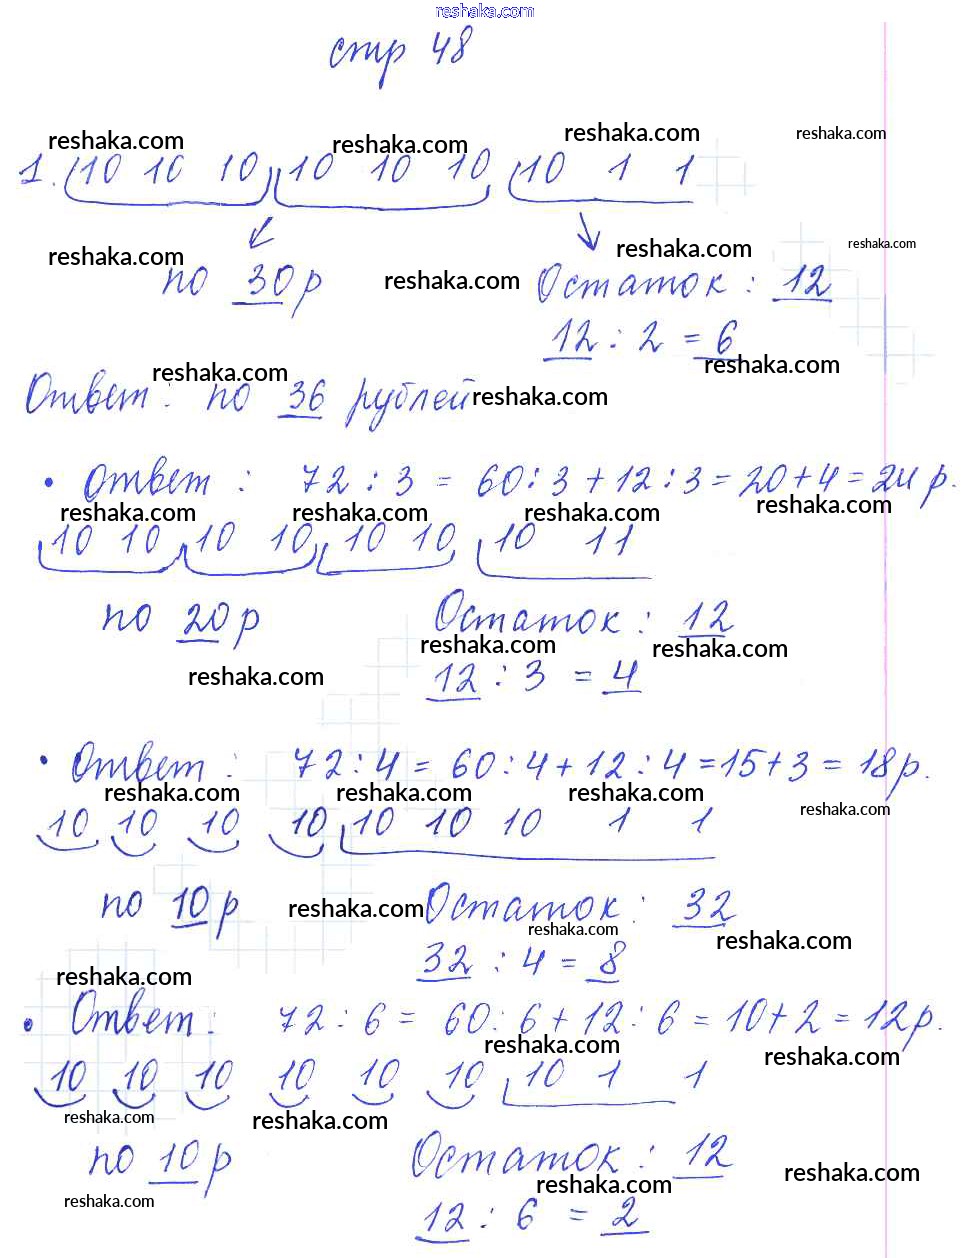 reshaka.com
стр 48
reshaka.com reshaka.com reshaka.com reshaka.com
1. 10 10 10 10 10 10 10 1 1
reshaka.com reshaka.com reshaka.com
по 30 р reshaka.com Остаток: 12
12 : 2 = 6
reshaka.com reshaka.com
Ответ: по 36 рублей reshaka.com
• Ответ: 72 : 3 = 60 : 3 + 12 : 3 = 20 + 4 = 24 р.
reshaka.com reshaka.com reshaka.com reshaka.com
10 10 10 10 10 10 10 1 1
по 20 р Остаток: 12
reshaka.com reshaka.com
reshaka.com 12 : 3 = 4
• Ответ: 72 : 4 = 60 : 4 + 12 : 4 = 15 + 3 = 18 р.
reshaka.com reshaka.com reshaka.com reshaka.com
10 10 10 10 10 10 10 1 1
по 10 р reshaka.com Остаток: 32
reshaka.com reshaka.com
reshaka.com 32 : 4 = 8
• Ответ: 72 : 6 = 60 : 6 + 12 : 6 = 10 + 2 = 12 р.
reshaka.com reshaka.com
10 10 10 10 10 10 10 1 1
reshaka.com reshaka.com
по 10 р Остаток: 12
reshaka.com reshaka.com reshaka.com
12 : 6 = 2